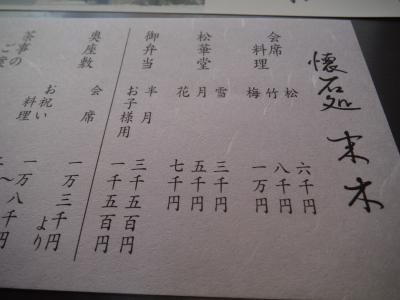 懐石処 末木
会席料理 松 六千円
竹 八千円
梅 一万円
松華堂 雪 三千円
月 五千円
花 七千円
御弁当 半月 三千五百円
お子様用 一千五百円
奥座敷 会席 一万三千円
お祝い料理 一万より
茶事のご
～八千円